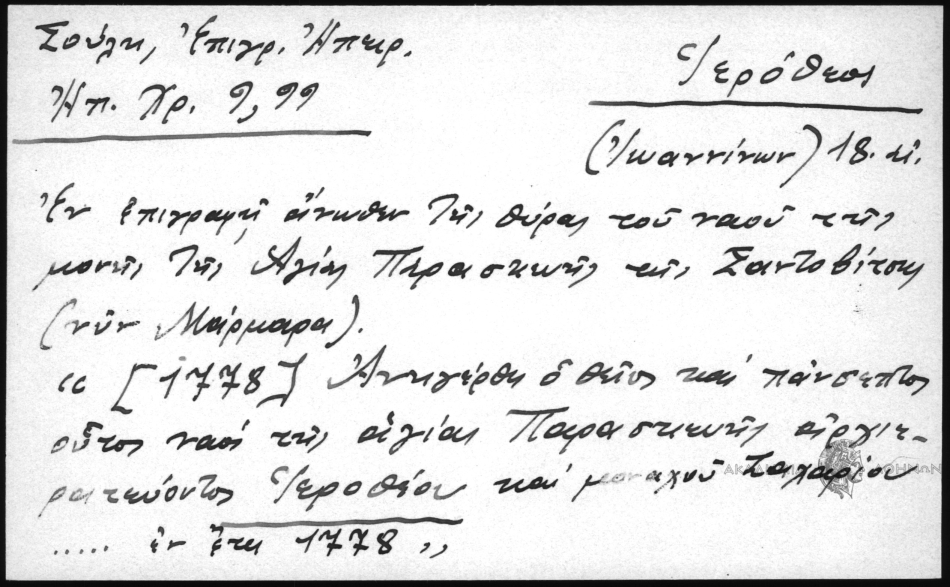 Σούλη, Ἐπιγρ. Ἠπειρ.
Ἠπ. Χρ. 9, 99
Ἱερόθεος
(Ἰωαννίνων) 18. αἰ.
Ἐν ἐπιγραφῇ ἄνωθεν τῆς θύρας τοῦ ναοῦ τῆς
μονῆς τῆς Ἁγίας Παρασκευῆς τῆς Σαντοβίτσης
(νῦν Μάρμαρα).
« [1778] Ἀνηγέρθη ὁ θεῖος καὶ πάνσεπτος
οὗτος ναός τῆς ἁγίας Παρασκευῆς ἀρχιε-
ρατεύοντος Ἱεροθέου καὶ μοναχοῦ Ζαχαρίου
..... ἐν ἔτει 1778 »